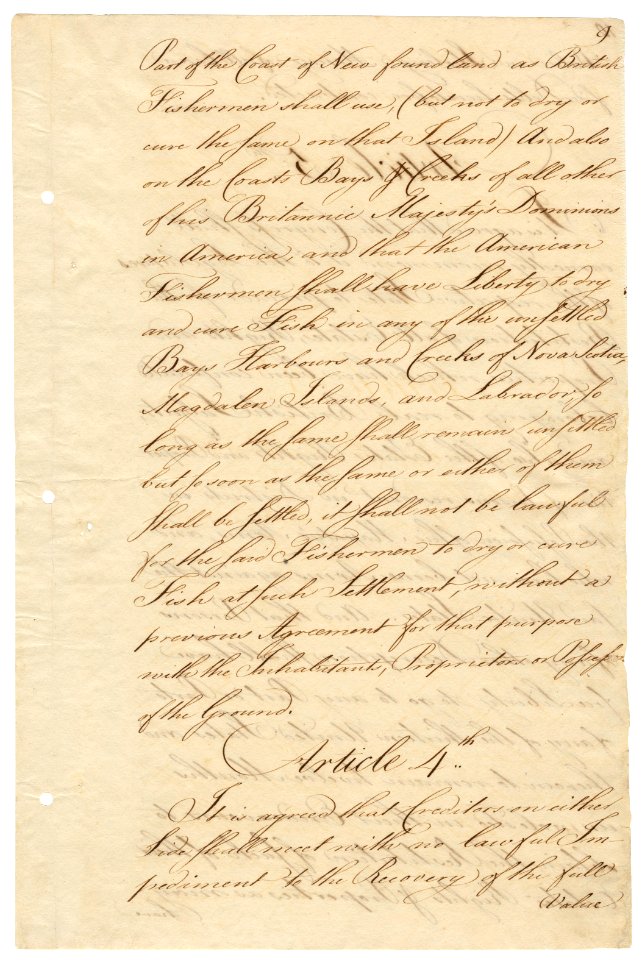 9
Part of the Coast of New found land as British
Fishermen shall use, (but not to dry or
cure the same on that Island) And also
on the Coasts Bays & Creeks of all other
of his Britannic Majesty's Dominions
in America, and that the American
Fishermen shall have Liberty to dry
and cure Fish in any of the unsettled
Bays Harbours and Creeks of Nova Scotia,
Magdalen Islands, and Labrador, so
long as the same shall remain unsettled
but so soon as the same or either of them
shall be settled, it shall not be lawful
for the said Fishermen to dry or cure
Fish at such Settlement, without a
previous Agreement for that purpose
with the Inhabitants, Proprietors or Possessors
of the Ground.
Article 4th.
It is agreed that Creditors on either
Side shall meet with no lawful Im
pediment to the Recovery of the full
Value